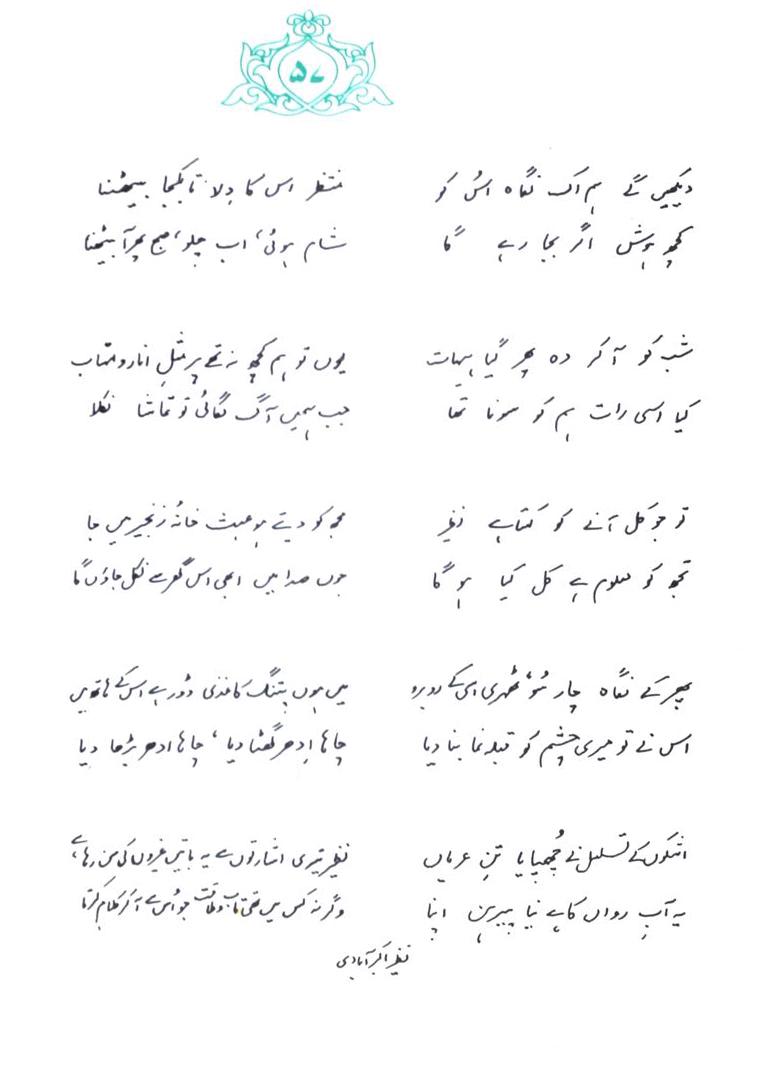 ۵۷
دیکھیں گے ہم اک نگاہ اُس کو
کچھ ہوش اگر بجا رہے گا
منتظر اس کا دِلا تا بکجا بیٹھنا
شام ہوئی، اب چلو، صبح پھر آ بیٹھنا
شب کو آ کر وہ پھر گیا ہیہات
کیا اسی رات ہم کو سونا تھا
یوں تو ہم کچھ نہ تھے پر مثلِ انار و مہتاب
جب ہمیں آگ لگائی تو تماشا نکلا
تو جو کل آنے کو کہتا ہے نظیر
تجھ کو معلوم ہے کل کیا ہو گا
مجھ کو دیتے ہو عبث خانۂ زنجیر میں جا
جوں صدا میں ابھی اس گھر سے نکل جاؤں گا
پھر کے نگاہ چار سُو، ٹھہری اسی کے روبرو
اس نے تو میری چشم کو قبلہ نما بنا دیا
میں ہوں پتنگ کاغذی ڈور ہے اس کے ہاتھ میں
چاہا اِدھر گھٹا دیا، چاہا ادھر بڑھا دیا
اشکوں کے تسلسل نے چُھپایا تنِ عریاں
یہ آبِ رواں کا ہے نیا پیرہن اپنا
نظیر تیری اشارتوں سے یہ باتیں غیروں کی سن رہا ہے،
وگرنہ کس میں تھی تاب و طاقت جو اُس سے آ کر کلام کرتا
نظیر اکبر آبادی